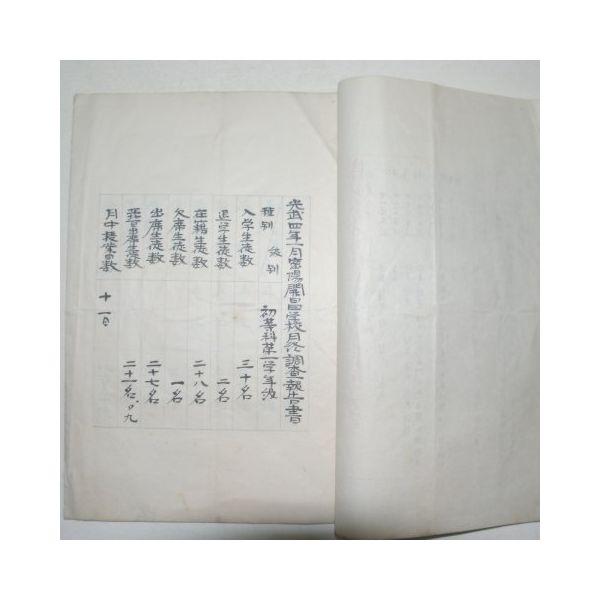 光武四年一月密陽開昌学校月終調査報告書
種別 級別 初等科第一学年級
入学生徒数 三十名
退学生徒数 二名
在籍生徒数 二十八名
欠席生徒数 一名
出席生徒数 二十七名
出席生徒数 二十一名.〇九
月中授業日数 十一日